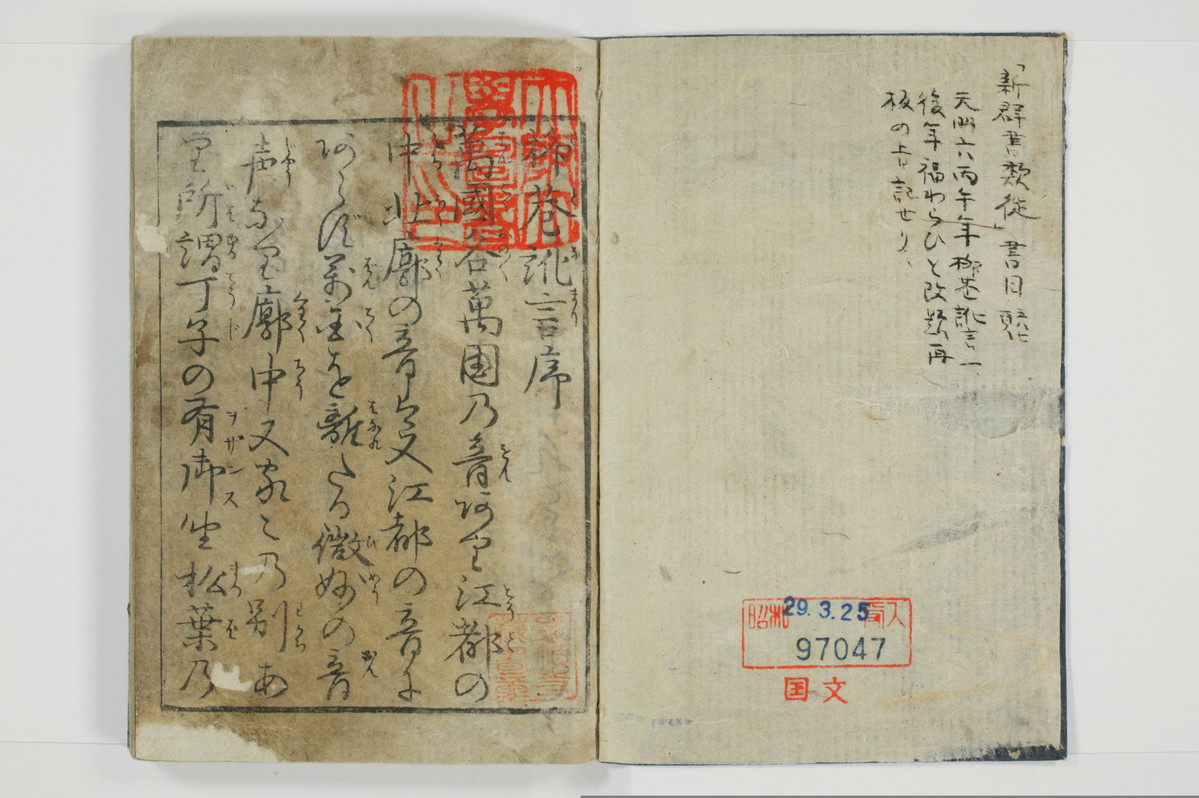 「新群書類従」書目
天明六丙午年柳巷訛言一
後年福わらひと改題再
板のよし記せり、
昭和 29.3.25 購入
97047
国文
柳巷訛言序
萬國各萬国乃音あり江都の
中北廓の音又江都の音に
あらず萬客を離たる微妙の音
声なり廓中又家々乃別あ
り所謂丁子の有御坐松葉乃